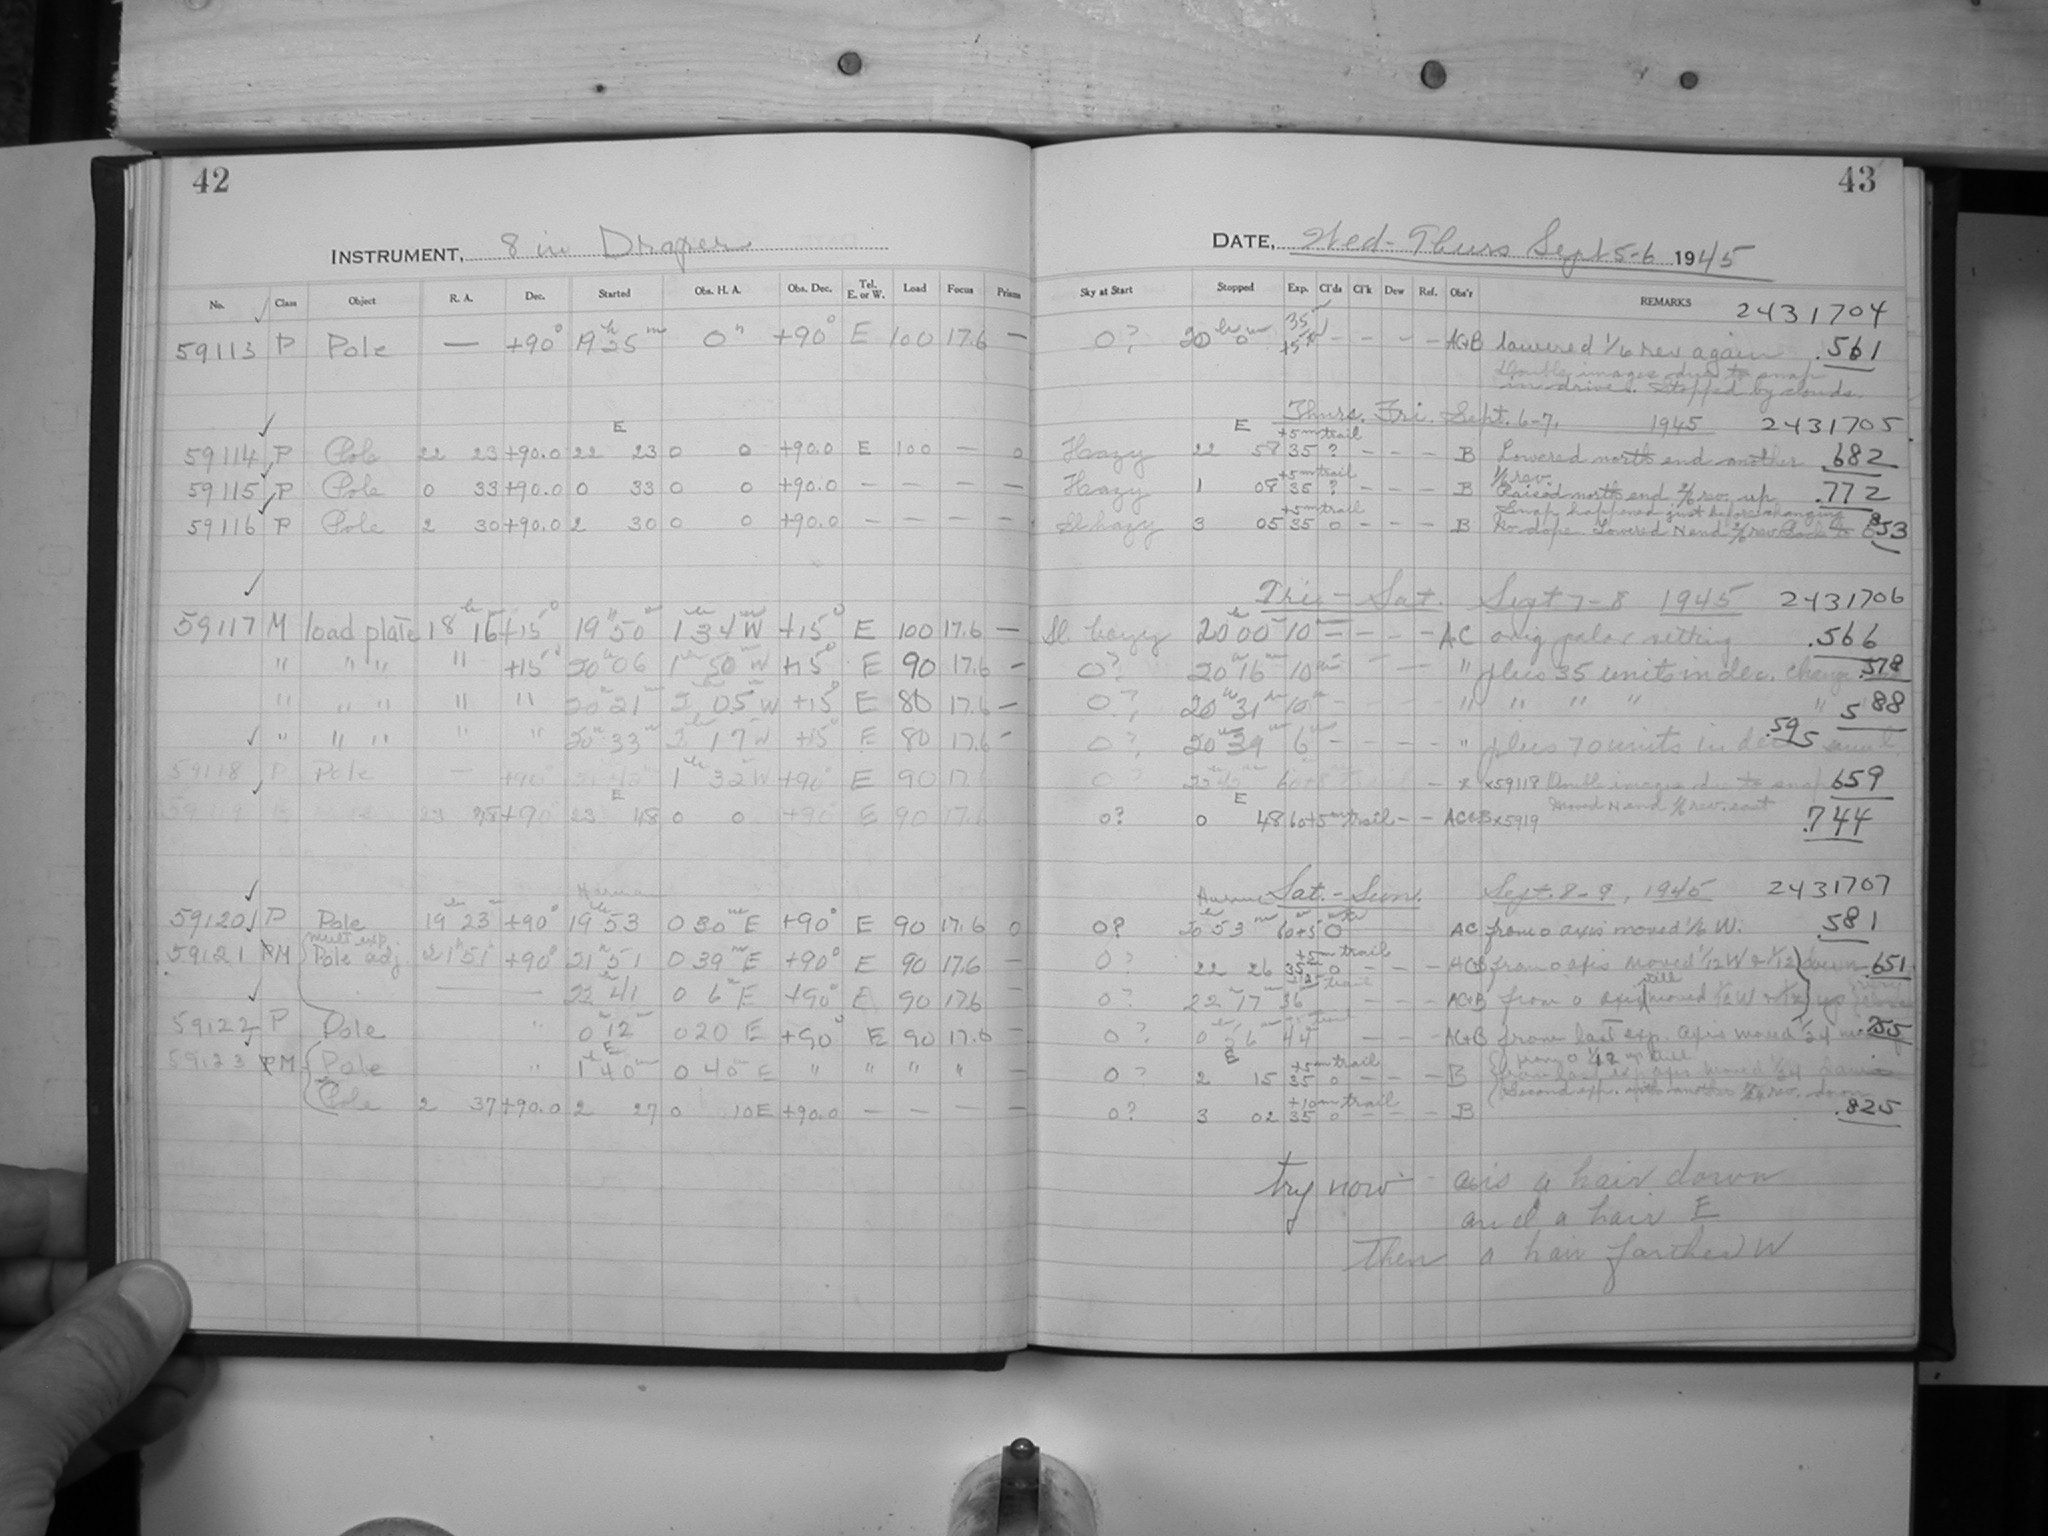 42
INSTRUMENT, 8 in Draper
No. Class Object R. A. Dec. Started Obs. H. A. Obs. Dec. Tel. E. or W. Load Focus Prism
59113 P Pole — +90° 19h 25m 0h +90° E 100 17.6 —
E
59114 P Pole 22 23 +90.0 22 23 0 0 +90.0 E 100 — 0
59115 P Pole 0 33 +90.0 0 33 0 0 +90.0 — — — —
59116 P Pole 2 30 +90.0 2 30 0 0 +90.0 — — — —
59117 M load plate 18h 16 +15° 19h 50m 1h 34m W +15° E 100 17.6 —
" " " " +15° 20h 06 1h 50m W +15° E 90 17.6 —
" " " " " 20h 21m 2h 05m W +15° E 80 17.6 —
" " " " " 20h 33m 2h 17m W +15° E 80 17.6 -
59118 P Pole — +90° 1h 32m W +90° E 90 17.
E
23 48 +90 23 48 0 0 +90° E 90 17.6
59120 P Pole 19h 23m +90° 19h 53 0 30m E +90° E 90 17.6 0
mult exp.
59121 PM Pole adj. 21h 51m +90° 21h 51 0 39m E +90° E 90 17.6 —
22h 41 0 6m E +90° E 90 17.6 —
59122 P Pole " 0h 12m 0 20 E +90° E 90 17.6 —
E
59123 PM Pole " 1h 40m 0 40m E " " " " —
Pole 2 37 +90.0 2 27 0 10E +90.0 — — — —
43
DATE, Wed - Thurs Sept 5-6 1945
Sky at Start Stopped Exp. Cl'ds Cl'k Dew Ref. Obs'r REMARKS 2431704
0? 20h 0m 35 +5 - - - - AC+B lowered 1/6 rev again .561
Double images due to snap
in drive. Stopped by clouds.
Thurs. Fri. Sept. 6-7, 1945 2431705
E +5m trail
Hazy 22 58 35 ? - - - B Lowered north end another 682
1/6 rev.
+5m trail
Hazy 1 08 35 ? - - - B Raised north end 2/6 rev. up .772
Snap happened just before changing
+5m trail
Sl hazy 3 05 35 0 - - - B No dope. Lowered N end 2/6 rev back to 0 853
Fri - Sat. Sept 7-8 1945 2431706
Sl hazy 20h 00m 10m - - - - AC orig polar setting .566
0? 20h 16m 10m - - - " plus 35 units in dec. change .578
0? 20h 31m 10m - - - - " " " " " 588
0? 20h 39m 6m - - - - " plus 70 units in dec .595
0? - x x59118 Double images due to snap 659
Moved N end 1/6 rev. east
E
0? 0 48 60+5m trail - - AC+B x5919 .744
Sat. - Sun. Sept. 8-9, 1945 2431707
0? 20h 53m 60+5 0 AC from 0 axis moved 1/6 W. .581
+5m trail
0? 22 26 35 0 - - - AC+B from 0 axis moved 1/12 W & 1/12 down .651
0? 22 17 36 AC+B from 0 axis still moved 1/12 W & 1/12 up
0? 0 56m 44 - - - AC+B from last exp. axis moved 1/24 755
E +5m trail
0? 2 15 35 0 - - - B from last exp axis moved 1/24
Second exp. with another 1/24 rev. down
+10m trail
0? 3 02 35 0 - - - B .825
try now - axis a hair down
and a hair E
then a hair farther W